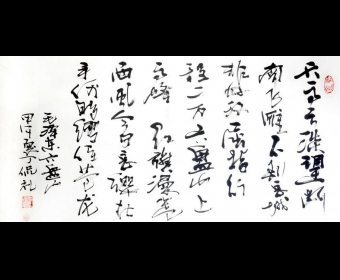 天高云淡望断
南飞雁不到长城
非好汉屈指行
程二万六盘山上
高峰红旗漫卷
西风今日长缨在
手何时缚住苍龙
毛泽东六盘山
甲午夏